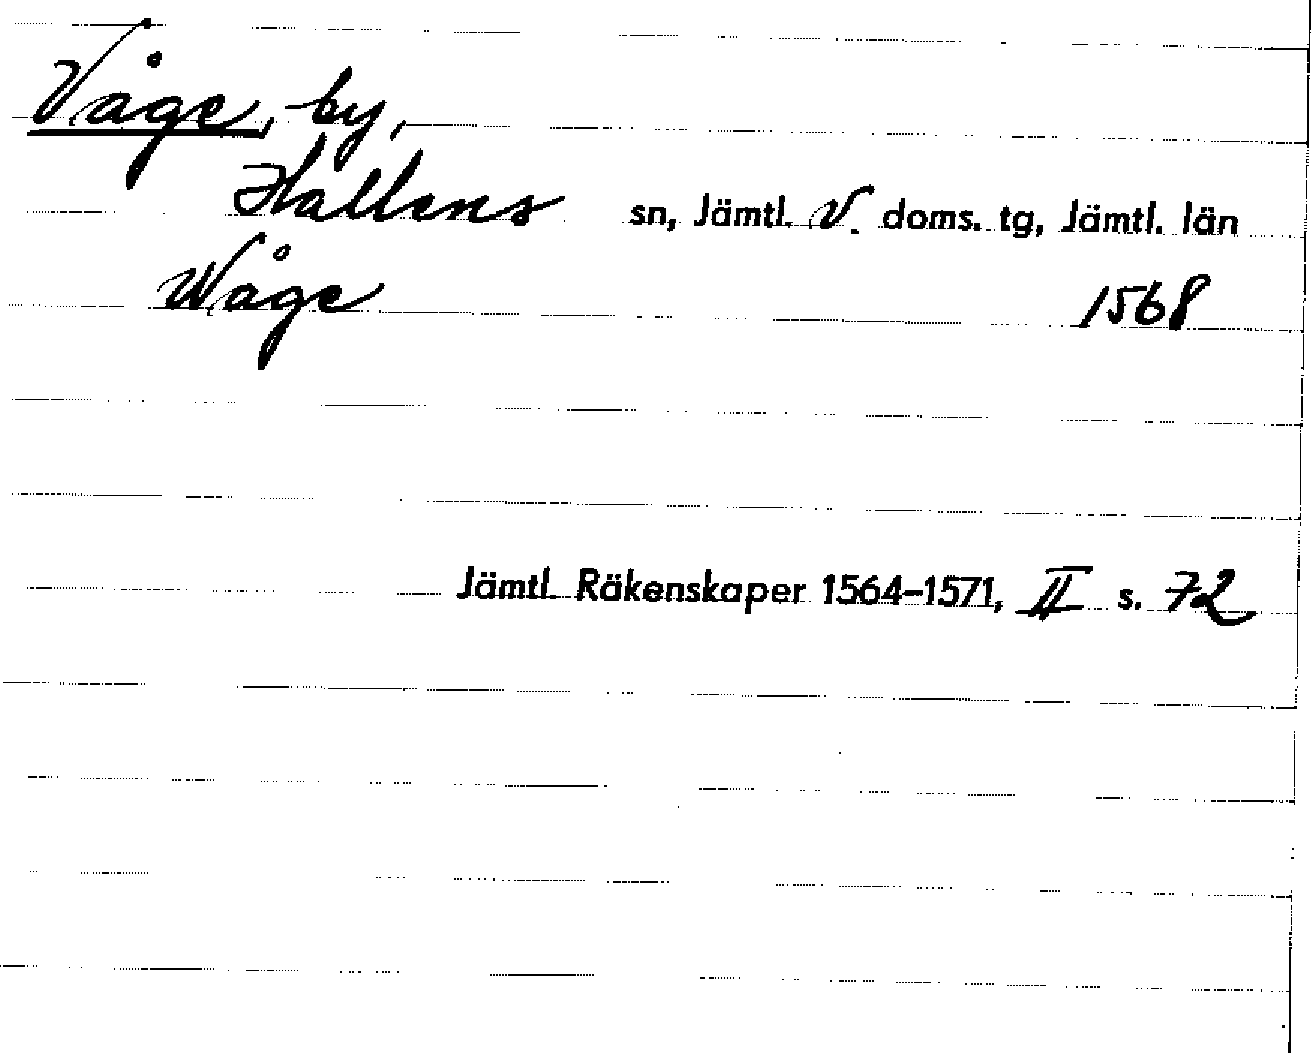 Våge, by,
Hallens sn, Jämtl. V. doms. tg, Jämtl. län
Wåge 1568
Jämtl. Räkenskaper 1564-1571, II s. 72